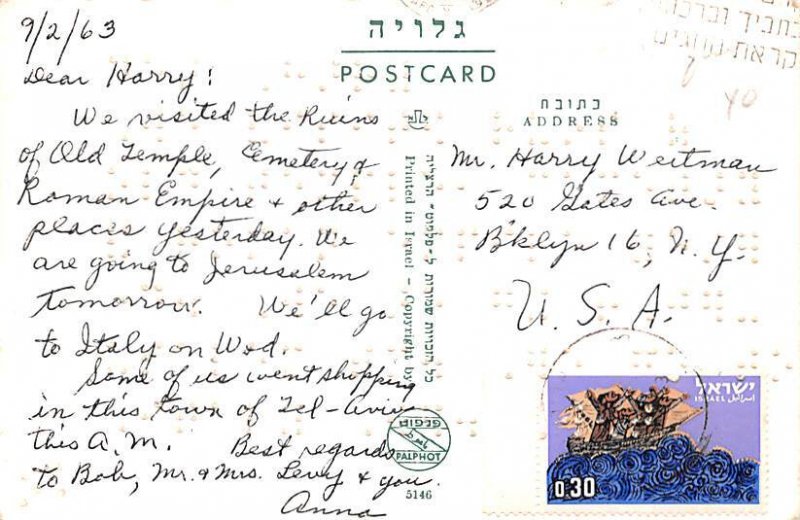 9/2/63
Dear Harry:
We visited the Ruins
of Old Temple, Cemetery &
Roman Empire & other
places yesterday. We
are going to Jerusalem
tomorrow. We'll go
to Italy on Wed.
Some of us went shopping
in this town of Tel-Aviv
this A.M. Best regards
to Bob, Mr. & Mrs. Levy & you.
Anna
גלויה
POSTCARD
כל הזכויות שמורות ל-"פלפוט" הרצליה
Printed in Israel - Copyright by
PALPHOT
5146
כתובת
ADDRESS
Mr. Harry Weitman
520 Gates Ave.
B'klyn 16, N.Y.
U.S.A.
40
ישראל
ISRAEL اسرائيل
0.30